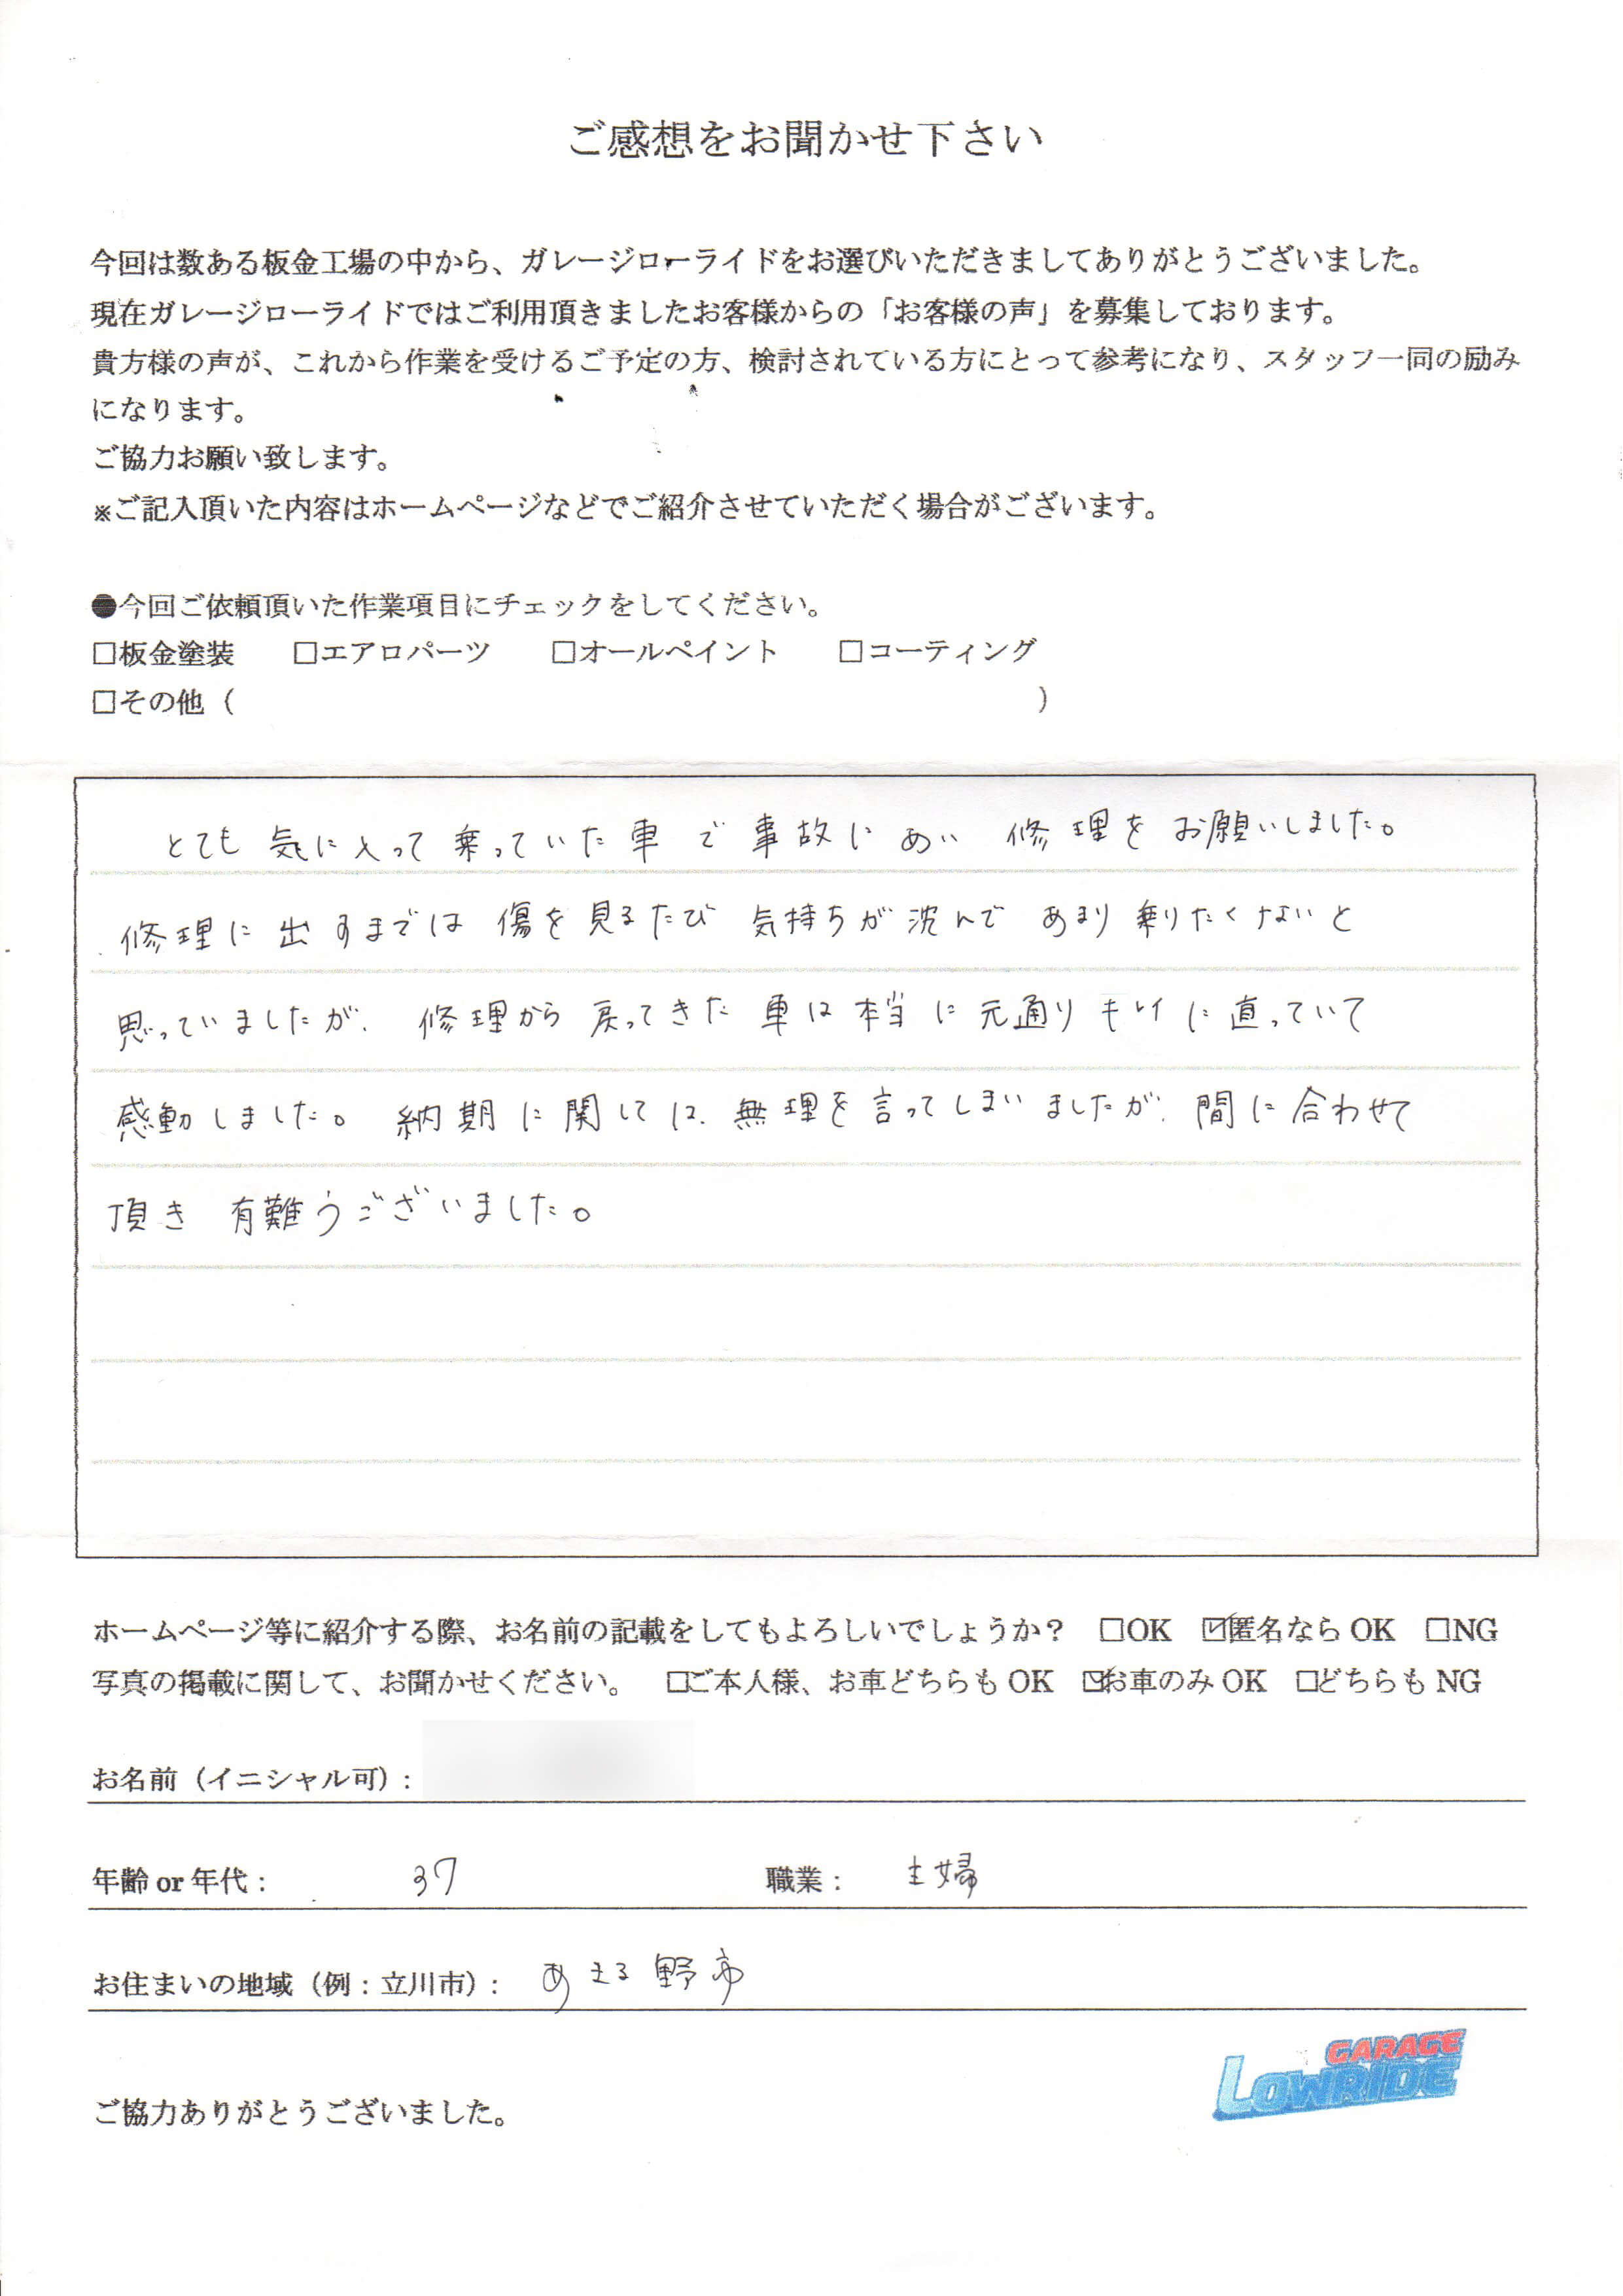 ご感想をお聞かせ下さい
今回は数ある板金工場の中から、ガレージローライドをお選びいただきましてありがとうございました。
現在ガレージローライドではご利用頂きましたお客様からの「お客様の声」を募集しております。
貴方様の声が、これから作業を受けるご予定の方、検討されている方にとって参考になり、スタッフ一同の励み
になります。
ご協力お願い致します。
※ご記入頂いた内容はホームページなどでご紹介させていただく場合がございます。
●今回ご依頼頂いた作業項目にチェックをしてください。
□板金塗装 □エアロパーツ □オールペイント □コーティング
□その他（ ）
とても気に入って乗っていた車で事故にあい修理をお願いしました。
修理に出すまでは傷を見るたび気持ちが沈んであまり乗りたくないと
思っていましたが、修理から戻ってきた車は本当に元通りキレイに直っていて
感動しました。納期に関しては、無理を言ってしまいましたが、間に合わせて
頂き有難うございました。
ホームページ等に紹介する際、お名前の記載をしてもよろしいでしょうか？ □OK ☑匿名なら OK □NG
写真の掲載に関して、お聞かせください。 □ご本人様、お車どちらも OK ☑お車のみ OK □どちらも NG
お名前（イニシャル可）:
年齢 or 年代： 37 職業： 主婦
お住まいの地域（例：立川市）： あきる野市
GARAGE
LOWRIDE
ご協力ありがとうございました。